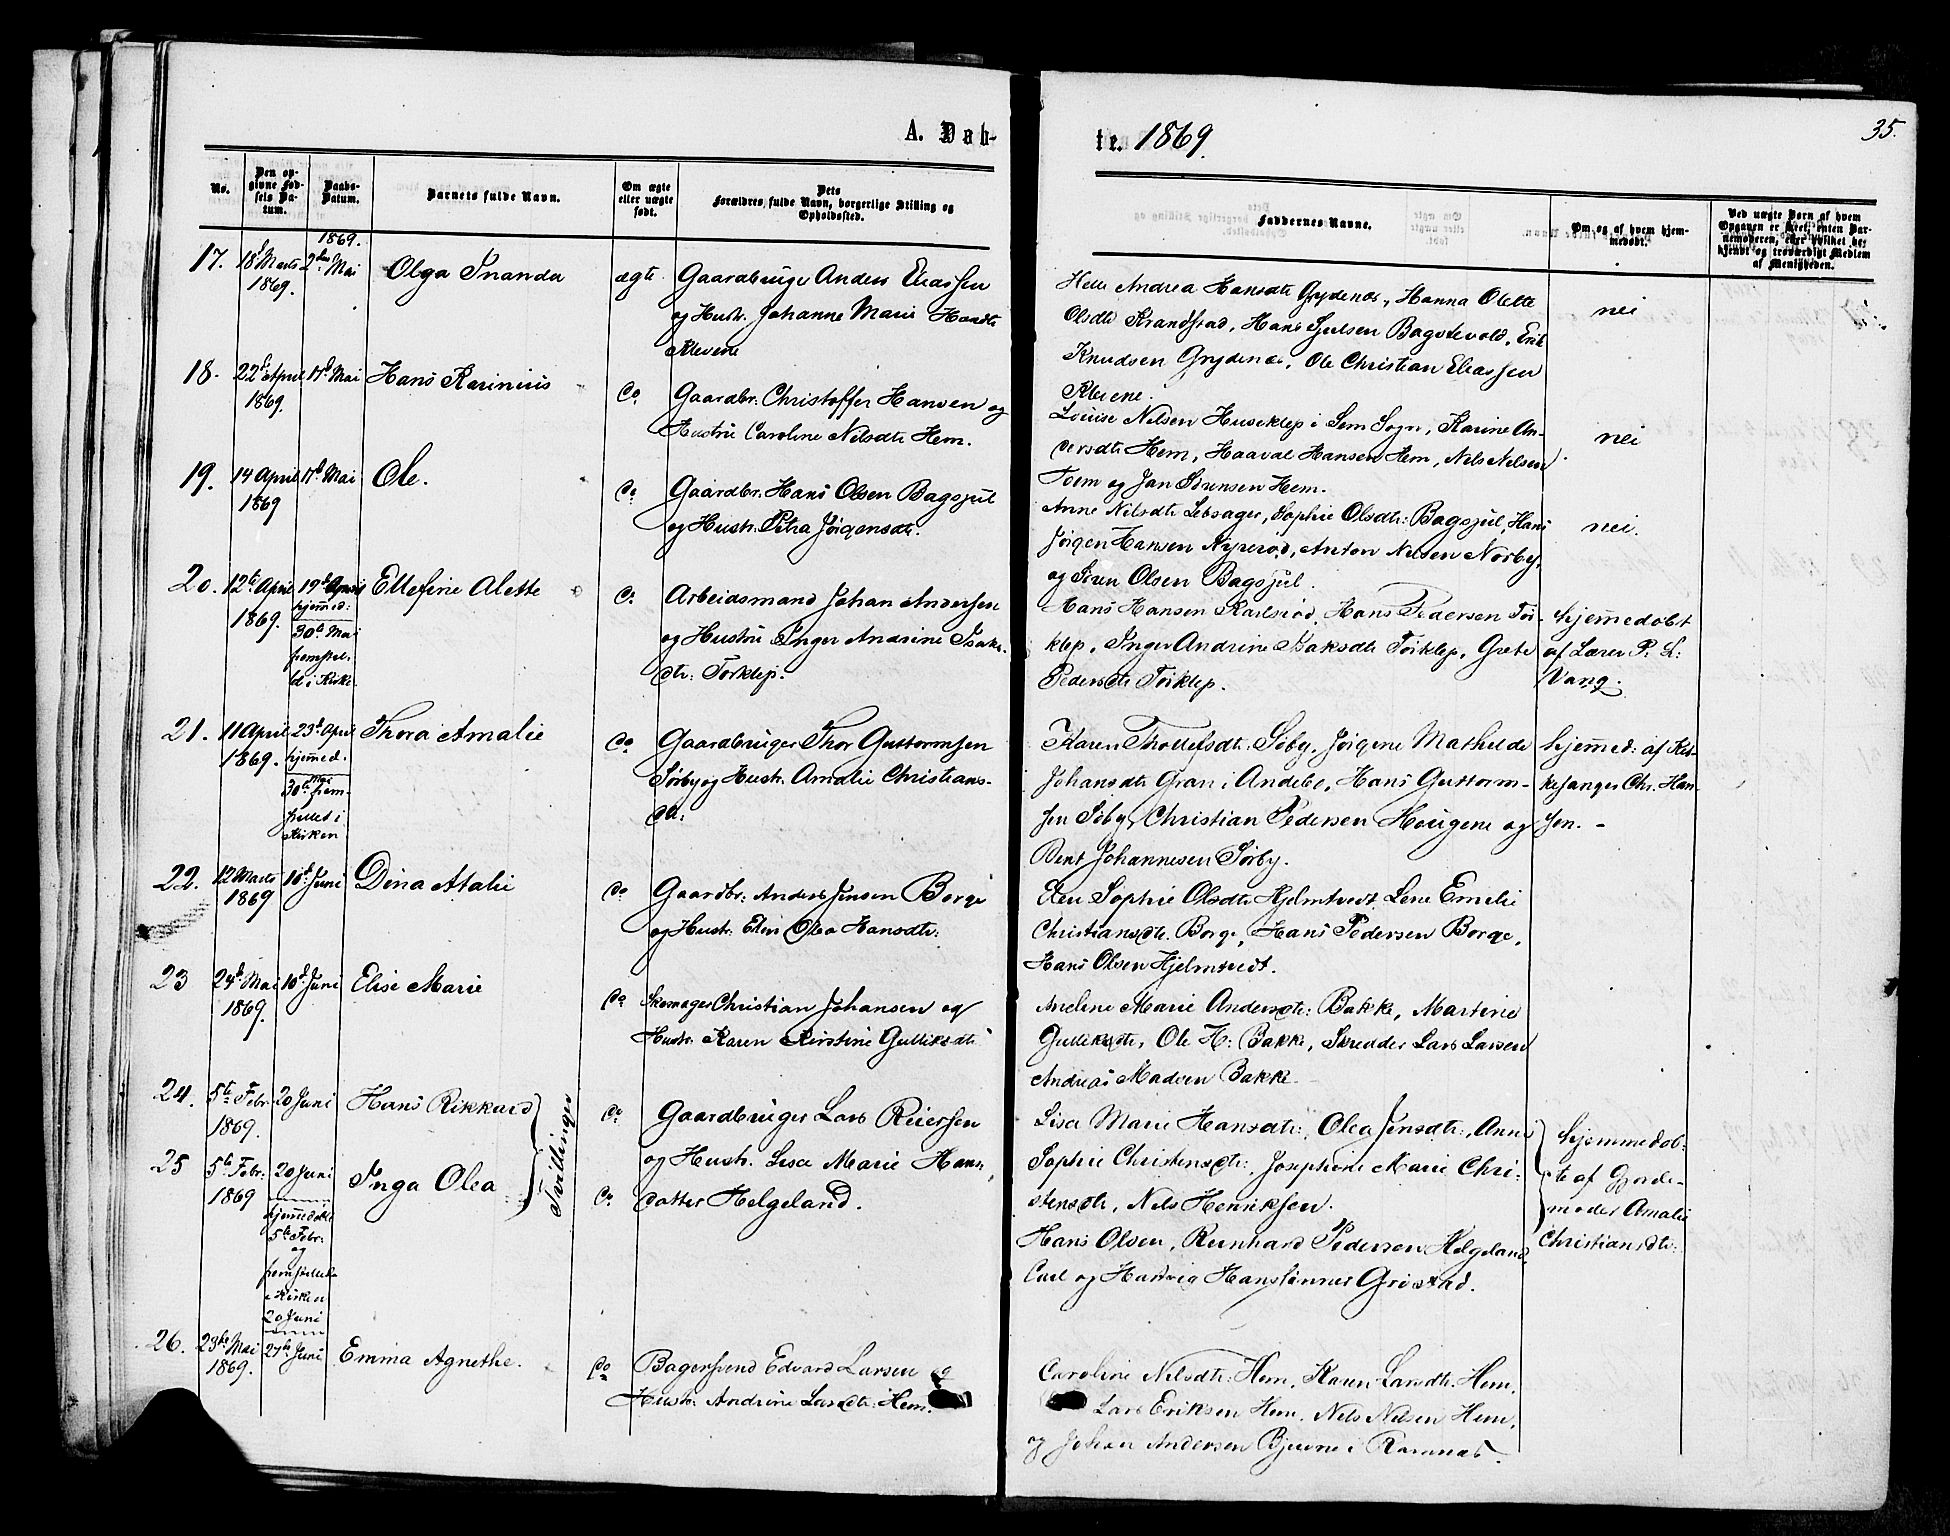 A. Døb-
te. 1869.
35.
No.
Den op-
givne Fød-
sels Da-
tum.
Daabs-
Datum.
Barnets fulde Navn.
Om ægte
eller uægte
født.
Dets
Forældres fulde Navn, borgerlige Stilling og
Opholdssted.
Faddernes Navne.
Om og af hvem hjem-
medøbt.
Ved uægte Børn af hvem
Opgaven er skeet, enten Bar-
nemoderen, eller hvilket be-
kjendt og troværdigt Medlem
af Menigheden.
1869.
17.
18d Marts
1869.
2den Mai
Olga Inanda
ægte
Gaardbruger Anders Eliassen
og Hustr. Johanne Marie Hansdtr
Klevene
Helle Andrea Hansdtr Grydenæs, Hanna Olette
Olsdtr Strandstad, Hans Julsen Bagstevold, Erik
Knudsen Grydenæs, Ole Christian Eliassen
Klevene.
nei
18.
22d April
1869.
17d Mai
Hans Karinius
do
Gaardbr: Christoffer Hansen og
Hustru Caroline Nilsdtr Hem.
Louise Nilsen Huseklep i Sem Sogn, Karine An-
dersdtr Hem, Haaval Hansen Hem, Nils Nilsen
Hem og Jan Sørensen Hem.
nei
19.
14 April
1869
17d Mai
Ole.
do
Gaardbr: Hans Olsen Bagsjul
og Hustr: Petra Jørgensdtr.
Anne Nilsdtr Lebsager, Sophie Olsdtr: Bagsjul, Hans
Jørgen Hansen Nyrerød, Anton Nilsen Nordby,
og Søren Olsen Bagsjul.
nei.
20.
12te April
1869.
19d April
hjemmed:
30te Mai
fremstil-
let i Kirke.
Ellefine Alette
do
Arbeidsmand Johan Andersen
og Hustru Inger Andrine Isaks-
dtr: Torklep.
Hans Hansen Karlsrød, Hans Pedersen Tor-
klep, Inger Andrine Isaksdtr Torklep, Grete
Pedersdtr Torklep.
hjemmedøbt
af Lærer P. L:
Vang.
21.
11 April
1869.
23d April
hjemmed.
30te Mai
frem-
stillet i
Kirken
Thora Amalie
do
Gaardbruger Thor Guttormsen
Sørby og Hustr. Amalie Christians-
dtr:
Karen Thollefsdtr: Søby, Jørgine Mathilde
Johansdtr Gran i Andebo, Hans Guttorm-
sen Søby, Christian Pedersen Hougene og
Bent Johannesen Sørby.
hjemmed: af Kir-
kesanger Chr. Han-
sen. -
22.
12 Marts
1869
10d Juni
Dina Atalie
do
Gaardbr: Anders Jensen Borge
og Hustr: Elen Olea Hansdtr:
Elen Sophie Olsdtr: Hjelmtvedt, Lene Emilie
Christiansdtr. Borge, Hans Pedersen Borge,
Hans Olsen Hjelmtvedt.
23
24d Mai
1869.
10d Juni
Elise Marie
do
Skomager Christian Johansen og
Hustr: Karen Kirstine Gulliksdtr
Aneline Marie Andersdtr: Bakke, Martine
Gulliksdtr, Ole H: Bakke, Skrædder Lars Larsen
Andreas Madsen Bakke.
24.
5te Febr
1869.
20 Juni
Hans Rikkard
do
25
5te Febr:
1869
20 Juni
hjemmedøbte
5te Febr:
og
fremstillede
i Kirken
20 Juni
Inga Olea
Tvillinger
do
Gaardbruger Lars Reiersen
og Hustr. Lisa Marie Hans-
datter Helgeland.
Lisa Marie Hansdtr:, Olea Jensdtr:, Anne
Sophie Christensdtr:, Josephine Marie Chri-
stensdtr, Nils Henriksen.
Hans Olsen, Reinhard Pedersen Helgeland,
Carl og Hartvig Hanssønner Grøstad.
hjemmedøb-
te af Gjorde-
moder Amalie
Christiansdtr:
26.
23de Mai
1869.
27de Juni
Emma Agnethe.
do
Bagersvend Edvard Larsen og
Hustr: Andrine Larsdtr: Hem.
Caroline Nilsdtr: Hem, Karen Larsdtr: Hem,
Lars Eriksen Hem, Nils Nilsen Hem,
og Johan Andersen Bjuvne i Ramnæs.